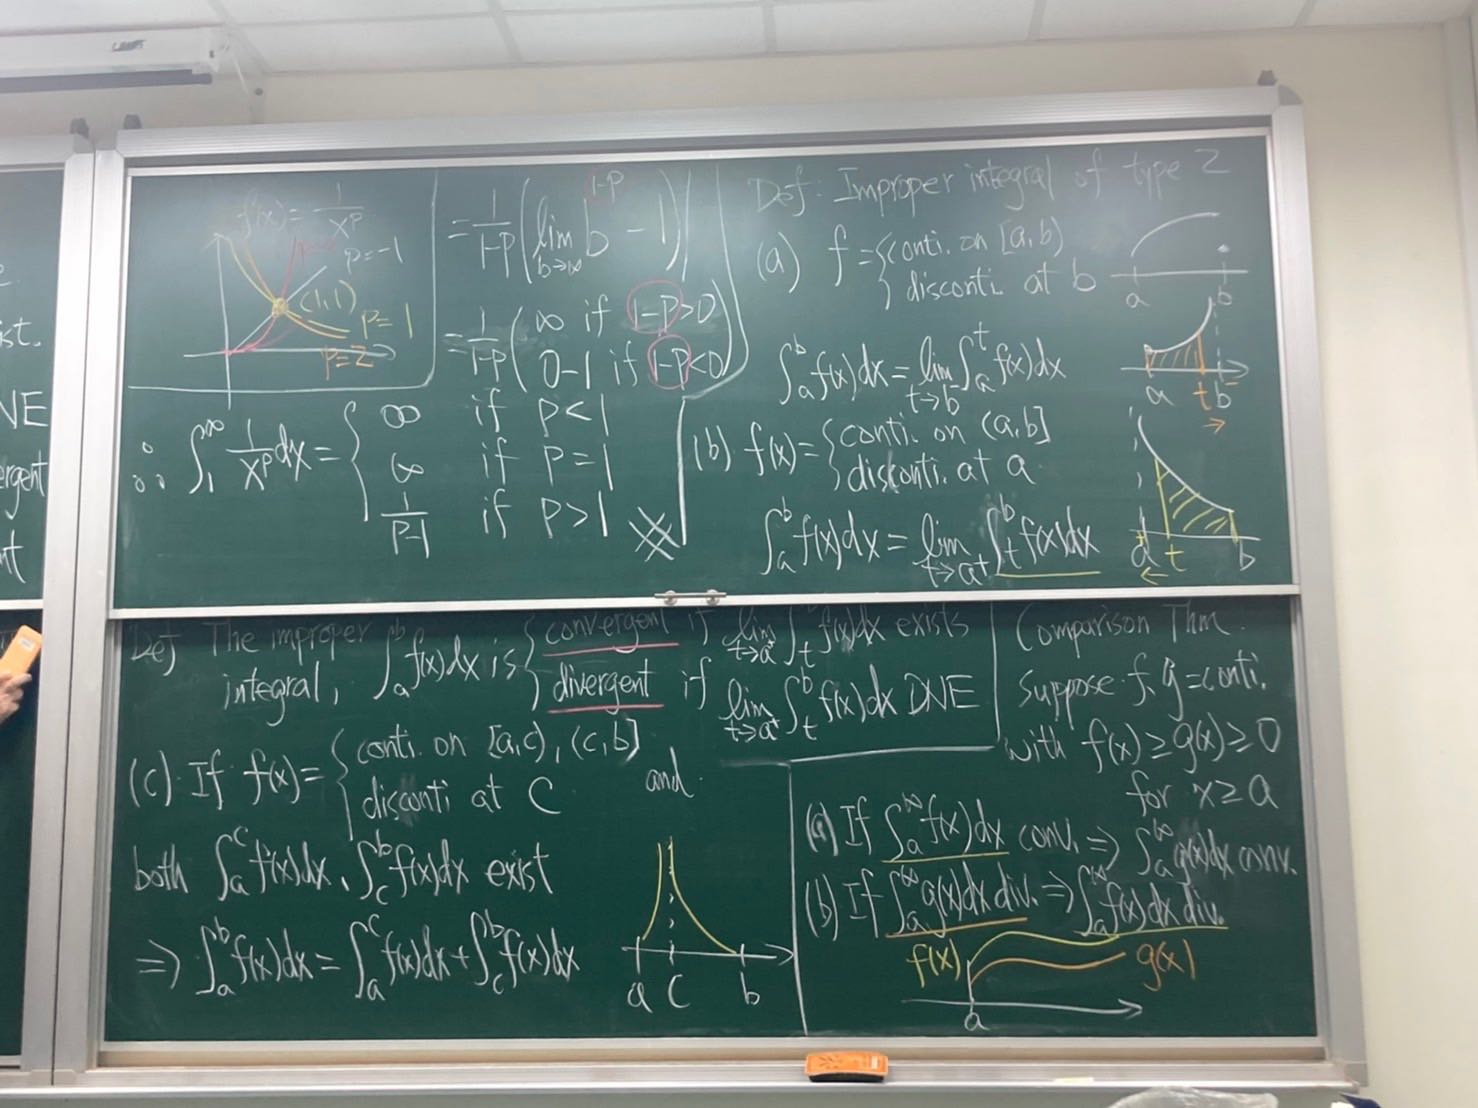 f(x)=1/x^p
p=-1
(1,1)
p=1
p=2
=1/(1-p) (lim_{b→∞} b^{1-p} - 1)
=1/(1-p) ( ∞ if 1-p>0
0-1 if 1-p<0 )
∴ ∫_1^∞ 1/x^p dx = { ∞ if p<1
∞ if p=1
1/(p-1) if p>1
Def: Improper integral of type 2
(a) f = { conti. on [a,b)
disconti. at b
a b
∫_a^b f(x)dx = lim_{t→b^-} ∫_a^t f(x)dx
a t b
→
(b) f(x) = { conti. on (a,b]
disconti. at a
∫_a^b f(x)dx = lim_{t→a^+} ∫_t^b f(x)dx
a t b
←
Def The improper
integral, ∫_a^b f(x)dx is { convergent if lim_{t→a^+} ∫_t^b f(x)dx exists
divergent if lim_{t→a^+} ∫_t^b f(x)dx DNE
(c) If f(x) = { conti. on [a,c), (c,b]
disconti at c
and
both ∫_a^c f(x)dx, ∫_c^b f(x)dx exist
⇒ ∫_a^b f(x)dx = ∫_a^c f(x)dx + ∫_c^b f(x)dx
a c b
Comparison Thm.
Suppose f, g = conti.
with f(x) ≥ g(x) ≥ 0
for x ≥ a
(a) If ∫_a^∞ f(x)dx conv. ⇒ ∫_a^∞ g(x)dx conv.
(b) If ∫_a^∞ g(x)dx div. ⇒ ∫_a^∞ f(x)dx div.
f(x)
g(x)
a